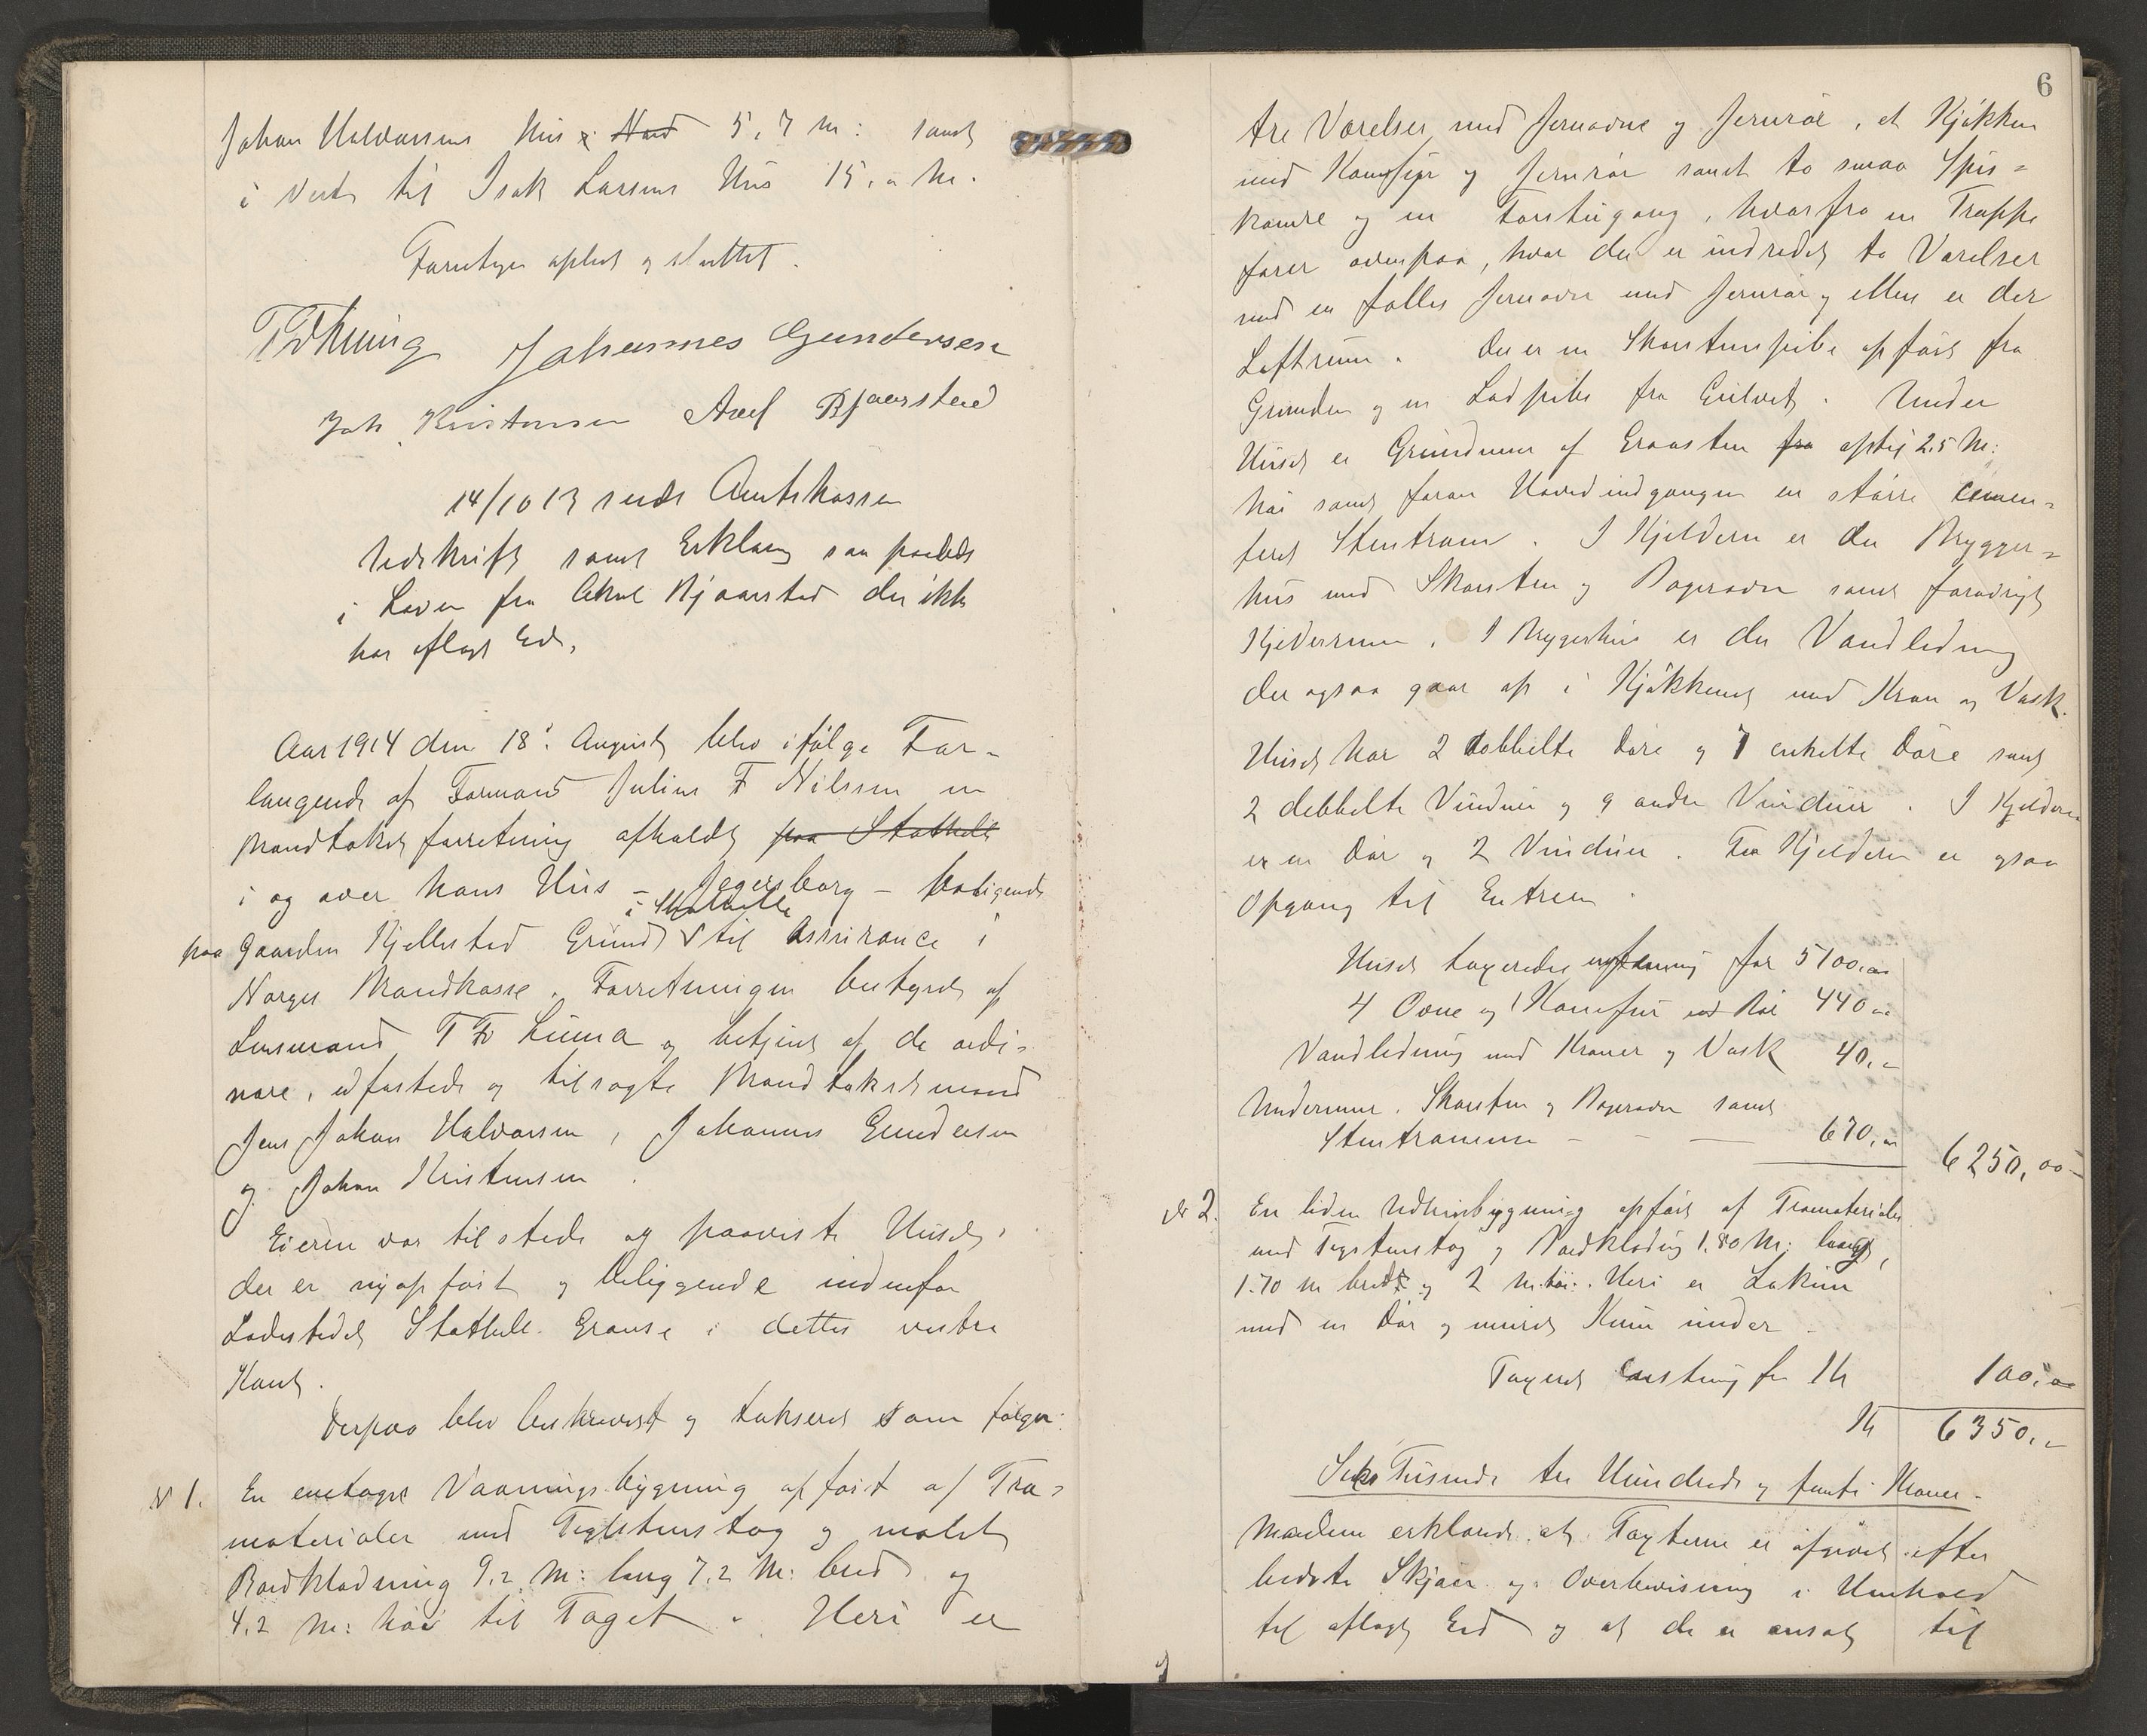 Johan Halvorsens Hus i Nord 5,7 m: samt
i Vest til Isak Larsens Hus 15,0 m.
Forretngen oplest og sluttet.
Johannes Gundersen
Joh. Kristensen Axel Bjaarstad
14/10 13 sendt Amtskassen
Udskrift samt Erklæring saa paabudt
i Loven fra Aksel Bjaarstad der ikke
har aflagt Ed.
Aar 1914 den 18: August blev ifølge For-
langende af Formand Julius F Nilssen en
Brandtakstforretning afholdt paa Stathelle
i og over hans Hus – Jegersborg – beligende
i Stathelle
paa Gaarden Kjellestad Grund til Assurance i
Norges Brandkasse. Forretningen bestyret af
Lensmand T Fr Linna og betjent af de ordi-
nære, edfæstede og tilsagte Brandtakstmænd
Jens Johan Halvorsen, Johannes Gundersen
og Johan Kristensen.
Eieren var tilstede og paaviste Huset,
der er nyopført og beliggende indenfor
Ladestedet Stathelle Grænse i dettes vestre
Kant.
Derpaa blev beskrevet og takseret som følger:
N 1. En enetages Vaaningsbygning opført af Træ-
materialer med Teglstenstag og malet
Bordklædning 9,2 M: lang 7,2 M: bred og
4,2 M: høi til Taget. Heri er
6
tre Værelser med Jernovne og Jernrør, et Kjøkken
med Komfyr og Jernrør samt to smaa Spis-
kamre og en Forstugang, hvorfra en Trappe
fører ovenpaa, hvor der er indredet to Værelser
med en fælles Jernovn med Jernrør og ellers er der
Loftrum. Der er en Skorstenspibe opført fra
Grunden og en Ladpibe fra Gulvet. Under
Huset er Grundmur af Graasten fra optil 2,5 M:
høi samt foran Hovedindgangen en større cemen-
teret Stentram. I Kjelderen er der Brygger-
hus med Skorsten og Bagerovn samt forøvrigt
Kjelderrum. I Bryggerhus er der Vandledning
der ogsaa gaar op i Kjøkkenet med Kran og Vask.
Huset har 2 dobbelte Døre og 7 enkelte Døre samt
2 dobbelte Vinduer og 9 andre Vinduer. I Kjelderen
er en Dør og 2 Vinduer. Fra Kjelderen er ogsaa
Opgang til Entreen.
Huset taxeredes for 5100,00
4 Ovne og 1 Komfur med Rør 440,00
Vandledning med Kraner og Vask 40,-
Undermur, Skorsten og Bagerovn samt
Stentrammen – – — 670,00
6250,00
N 2. En liden Udhusbygning opført af Træmaterialer
med Teglstenstag og Bordklædng 1,80 M: langt,
1.70 m bredt og 2 m. høi. Heri er Lokum
med en Dør og muret Kum under.
Taxeret for Kr 100,00
Kr 6350,-
Seks Tusinde tre Hundrede og femti Kroner.
Mændene erklærede at Taxterne er afgivet efter
bedste Skjøn og Overbevisning i Henhold
til aflagt Ed og at de er ansat til